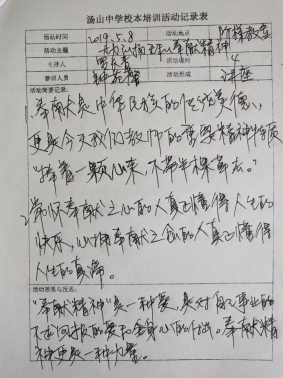 汤山中学校本培训活动记录表
活动时间 2019.5.8 活动地点 阶梯教室
活动主题 大力弘扬 奉献精神
主持人 活动课时 4
参训人员 活动形式 讲座
活动简要记录：
1.奉献是中华民族的传统美德，
更是今天我们教师的重要精神特质
"捧着一颗心来，不带半根草去。"
2.常怀奉献之心的人真正懂得人生的
快乐，心怀奉献之念的人真正懂得
人生的真谛。
活动效果与反思：
"奉献精神"是一种爱，是对自己事业的
不求回报的爱和全身心的付出。奉献精
神更是一种力量。